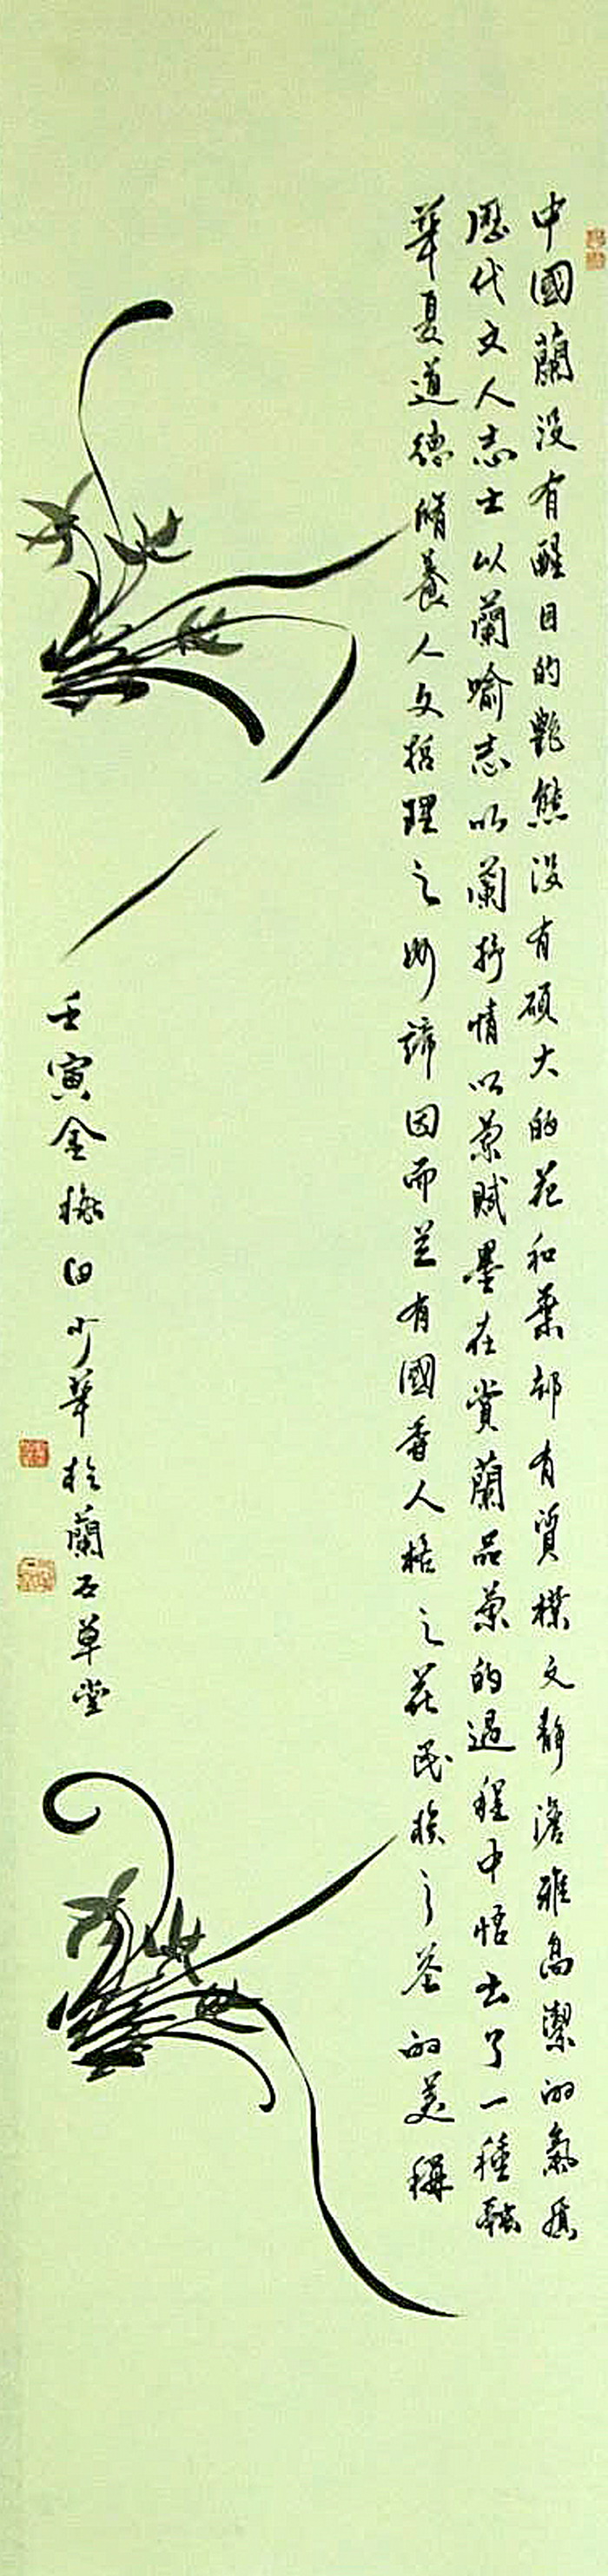 中國蘭没有醒目的艷態没有碩大的花和葉却有質樸文静澹雅高潔的氣质
歷代文人志士以蘭喻志以蘭抒情以蘭賦墨在賞蘭品蘭的過程中悟出了一種融
華夏道德脩養人文哲理之妙諦因而兰有國香人格之花民族之花的美稱
壬寅金梅田少華於蘭石草堂